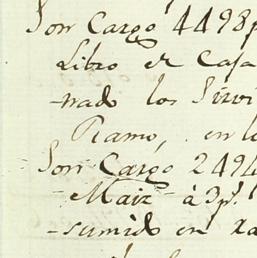 Son Cargo 4498p
Libro de Caja
-nado los Sirvi
Ramo, en l
Son Cargo 2494
Maiz à 3p.
-sumido en ra